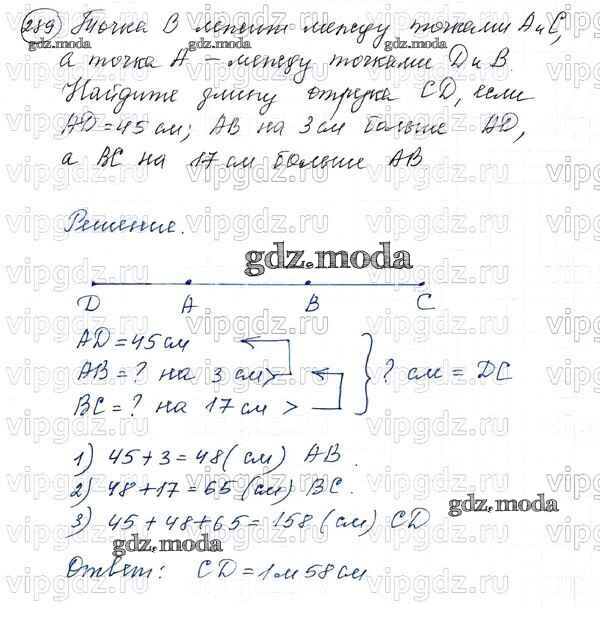 289) Точка В лежит между точками А и С,
а точка А – между точками D и В.
Найдите длину отрезка CD, если
AD = 45 см; АВ на 3 см больше AD,
а ВС на 17 см больше АВ
Решение.
gdz.moda
D A B C
AD = 45 см
AB = ? на 3 см >
BC = ? на 17 см >
? см = DC
1) 45 + 3 = 48 (см) AB.
2) 48 + 17 = 65 (см) BC.
3) 45 + 48 + 65 = 158 (см) CD
Ответ: CD = 1 м 58 см
gdz.moda
gdz.moda
gdz.moda
gdz.moda
vipgdz.ru